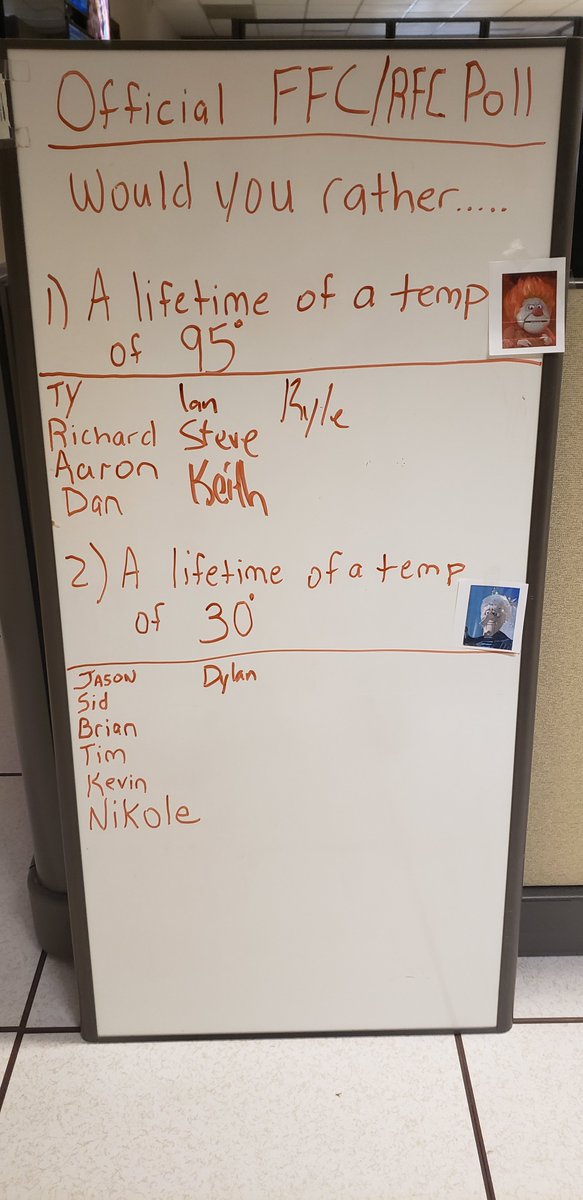 Official FFC/RFC Poll
Would you rather.....
1) A lifetime of a temp
of 95°
Ty Ian Kyle
Richard Steve
Aaron Keith
Dan
2) A lifetime of a temp
of 30°
JASON Dylan
Sid
Brian
Tim
Kevin
Nikole